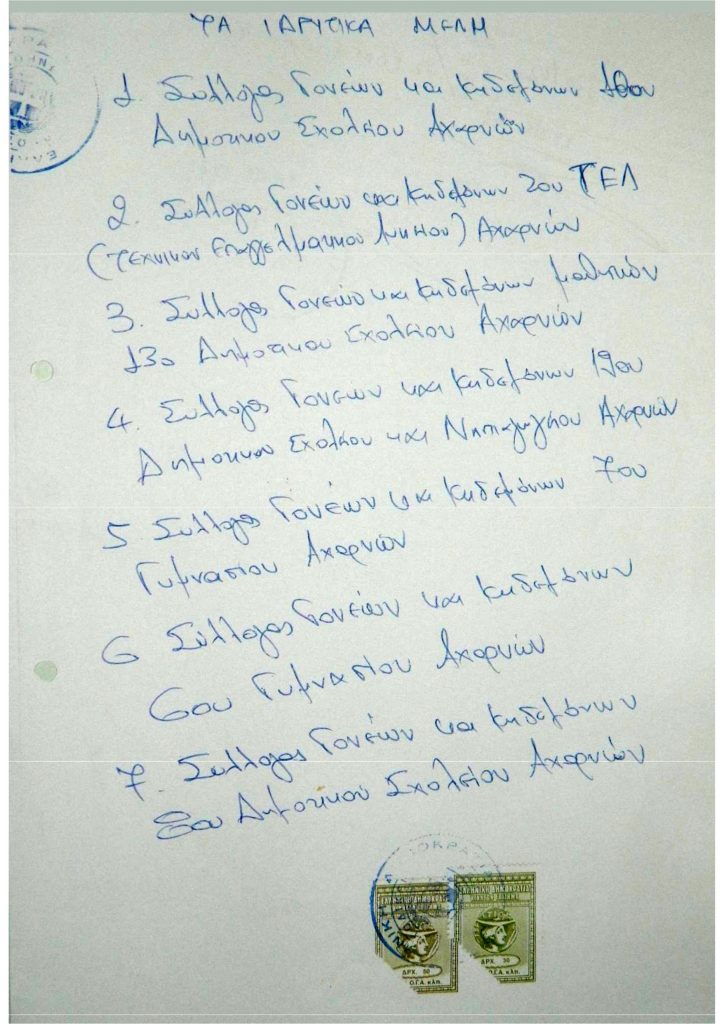 ΤΑ ΙΔΡΥΤΙΚΑ ΜΕΛΗ
1. Σύλλογος Γονέων και Κηδεμόνων 10ου
Δημοτικού Σχολείου Αχαρνών
2. Σύλλογος Γονέων και Κηδεμόνων 2ου ΤΕΛ
(Τεχνικού Επαγγελματικού Λυκείου) Αχαρνών
3. Σύλλογος Γονέων και Κηδεμόνων μαθητών
13ο Δημοτικού Σχολείου Αχαρνών
4. Σύλλογος Γονέων και Κηδεμόνων 19ου
Δημοτικού Σχολείου και Νηπιαγωγείου Αχαρνών
5. Σύλλογος Γονέων και Κηδεμόνων 7ου
Γυμνασίου Αχαρνών
6 Σύλλογος Γονέων και Κηδεμόνων
6ου Γυμνασίου Αχαρνών
7. Σύλλογος Γονέων και Κηδεμόνων
8ου Δημοτικού Σχολείου Αχαρνών
ΕΛΛΗΝΙΚΗ ΔΗΜΟΚΡΑΤΙΑ
ΔΡΧ. 50
Ο.Γ.Α. κλπ.
ΕΛΛΗΝΙΚΗ ΔΗΜΟΚΡΑΤΙΑ
ΔΡΧ. 50
Ο.Γ.Α. κλπ.